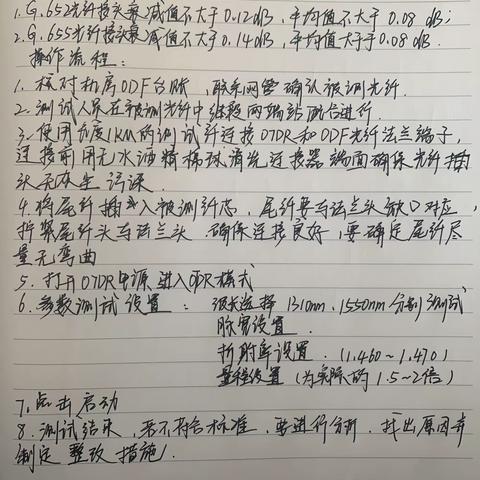 1.G.652光纤接头衰减值不大于0.12dB,平均值不大于0.08 dB;
2.G.655光纤接头衰减值不大于0.14dB,平均值大于于0.08dB.
操作流程:
1.核对机房ODF台账,联系网管确认被测光纤.
2.测试人员在被测光纤中继段两端站配合进行.
3.使用长度1KM的测试纤连接OTDR和ODF光纤法兰端子,
连接前用无水酒精棉球清洗连接器端面确保光纤插
头无灰尘污渍.
4.将尾纤插入被测纤芯,尾纤要与法兰头缺口对应,
拧紧尾纤头与法兰头 确保连接良好,要确定尾纤尽
量无弯曲
5.打开OTDR电源 进入OTDR模式
6.参数测试设置: 波长选择 1310nm、1550nm分别测试
脉宽设置.
折射率设置.(1.460~1.470)
量程设置(为实际的1.5~2倍)
7.点击启动
8.测试结束,若不符合标准,要进行分析,找出原因并
制定整改措施.